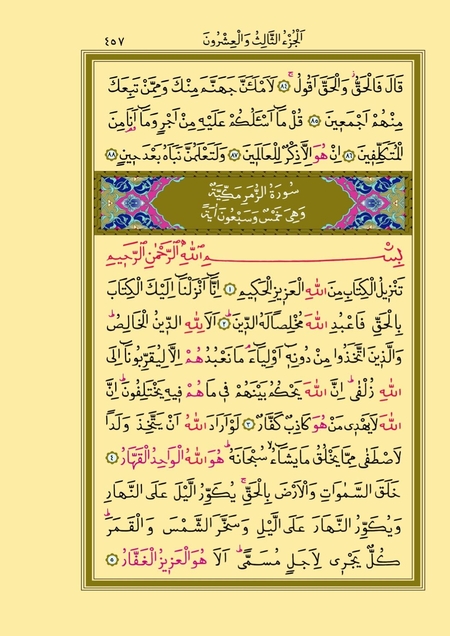 اَلْجُزْءُ الثَّالِثُ وَالْعِشْرُونَ ٤٥٧
قَالَ فَالْحَقُّۘ وَالْحَقَّ اَقُولُۚ ﴿٨٤﴾ لَاَمْلَـَٔنَّ جَهَنَّمَ مِنْكَ وَمِمَّنْ تَبِعَكَ
مِنْهُمْ اَجْمَع۪ينَ ﴿٨٥﴾ قُلْ مَٓا اَسْـَٔلُكُمْ عَلَيْهِ مِنْ اَجْرٍ وَمَٓا اَنَا۬ مِنَ
الْمُتَكَلِّف۪ينَ ﴿٨٦﴾ اِنْ هُوَ اِلَّا ذِكْرٌ لِلْعَالَم۪ينَ ﴿٨٧﴾ وَلَتَعْلَمُنَّ نَبَاَهُ بَعْدَ ح۪ينٍ ﴿٨٨﴾
سُورَةُ الزُّمَرِ مَكِّيَّةٌ
وَهِىَ خَمْسٌ وَسَبْعُونَ اٰيَةً
بِسْمِ اللّٰهِ الرَّحْمٰنِ الرَّح۪يمِ
تَنْز۪يلُ الْكِتَابِ مِنَ اللّٰهِ الْعَز۪يزِ الْحَك۪يمِ ﴿١﴾ اِنَّٓا اَنْزَلْنَٓا اِلَيْكَ الْكِتَابَ
بِالْحَقِّ فَاعْبُدِ اللّٰهَ مُخْلِصًا لَهُ الدّ۪ينَۜ ﴿٢﴾ اَلَا لِلّٰهِ الدّ۪ينُ الْخَالِصُۜ
وَالَّذ۪ينَ اتَّخَذُوا مِنْ دُونِه۪ٓ اَوْلِيَٓاءَۢ مَا نَعْبُدُهُمْ اِلَّا لِيُقَرِّبُونَٓا اِلَى
اللّٰهِ زُلْفٰىۜ اِنَّ اللّٰهَ يَحْكُمُ بَيْنَهُمْ ف۪ى مَا هُمْ ف۪يهِ يَخْتَلِفُونَۜ اِنَّ
اللّٰهَ لَا يَهْد۪ى مَنْ هُوَ كَاذِبٌ كَفَّارٌ ﴿٣﴾ لَوْ اَرَادَ اللّٰهُ اَنْ يَتَّخِذَ وَلَدًا
لَاصْطَفٰى مِمَّا يَخْلُقُ مَا يَشَٓاءُۙ سُبْحَانَهُۜ هُوَ اللّٰهُ الْوَاحِدُ الْقَهَّارُ ﴿٤﴾
خَلَقَ السَّمٰوَاتِ وَالْاَرْضَ بِالْحَقِّۚ يُكَوِّرُ الَّيْلَ عَلَى النَّهَارِ
وَيُكَوِّرُ النَّهَارَ عَلَى الَّيْلِ وَسَخَّرَ الشَّمْسَ وَالْقَمَرَۜ
كُلٌّ يَجْر۪ى لِاَجَلٍ مُسَمًّىۜ اَلَا هُوَ الْعَز۪يزُ الْغَفَّارُ ﴿٥﴾